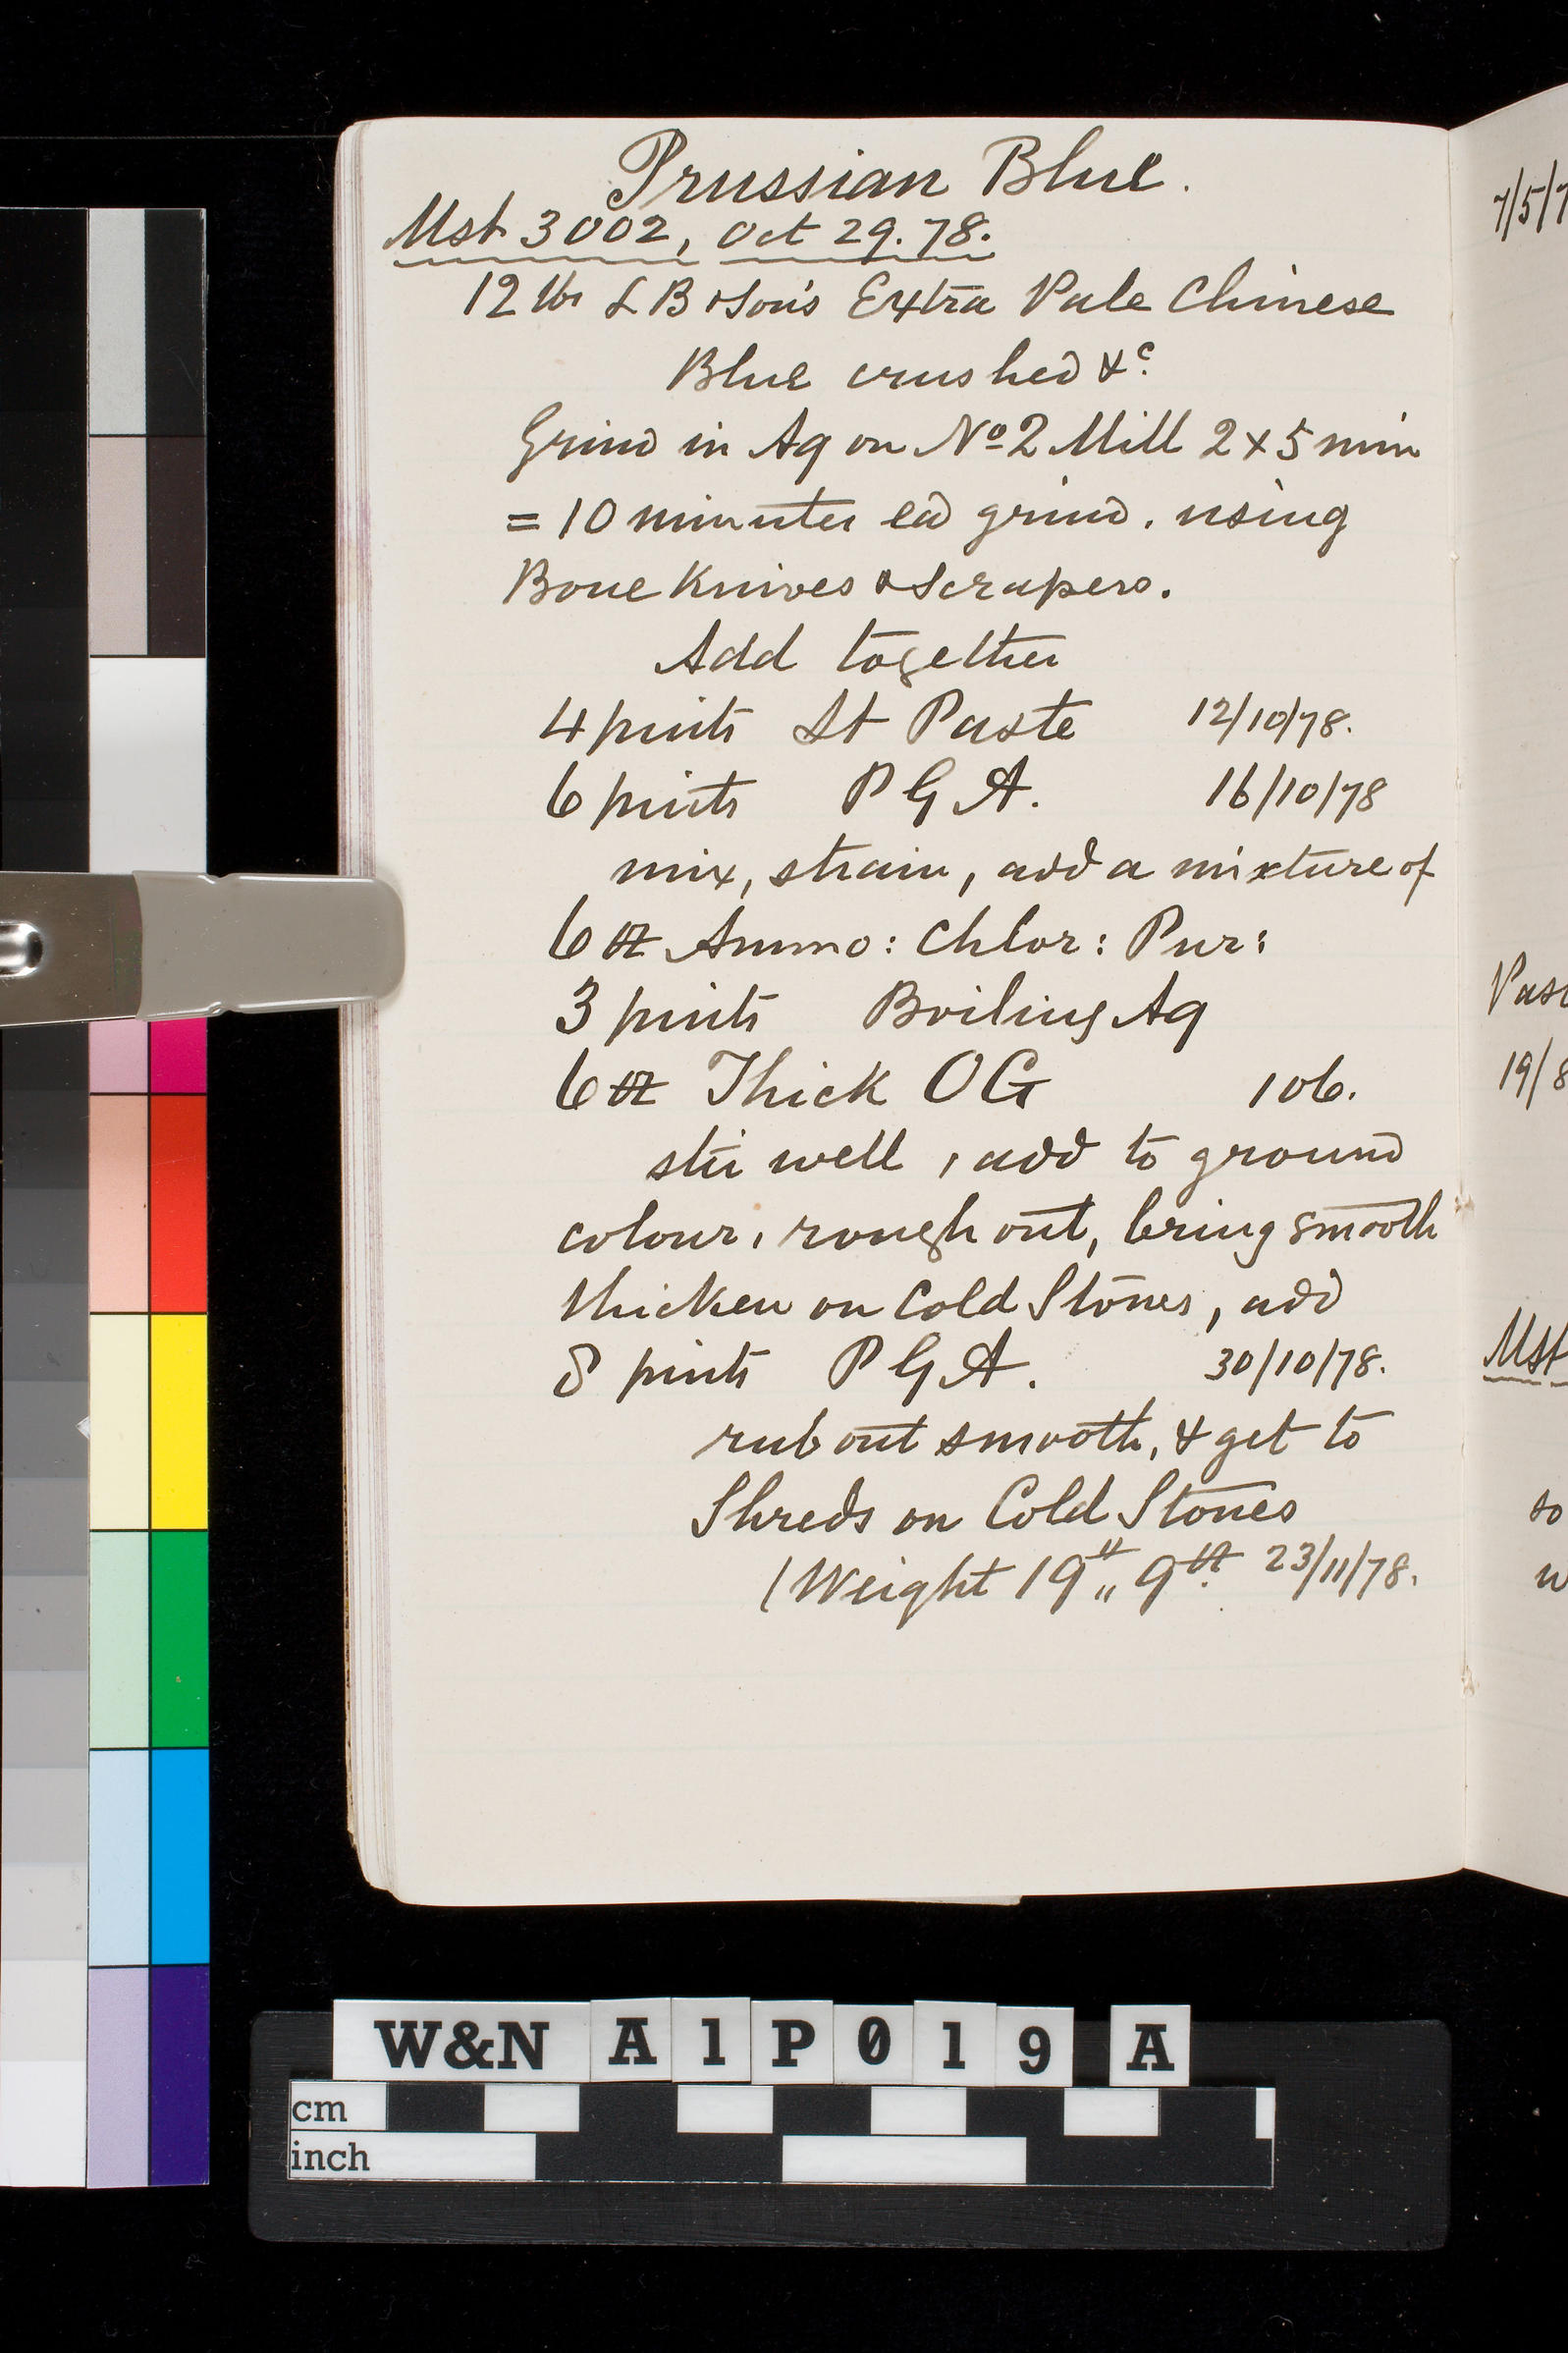 Prussian Blue.
Mst 3002, Oct 29. 78.
12 lbs L B & Son's Extra Pale Chinese
Blue crushed &c.
Grind in Aq on No 2 Mill 2 x 5 min
= 10 minutes ea grind. using
Bone Knives & Scrapers.
Add together
4 pints St Paste 12/10/78.
6 pints P G A. 16/10/78
mix, strain, add a mixture of
6 oz Ammo: Chlor: Pur:
3 pints Boiling Aq
6 oz Thick OG 106.
stir well, add to ground
colour, rough out, bring smooth
thicken on Cold Stones, add
8 pints P G A. 30/10/78.
rub out smooth, & get to
Shreds on Cold Stones
(Weight 19 lb,, 9 oz. 23/11/78.
7/5/7
19/8
Mst
so
W&N A1P019 A
cm
inch